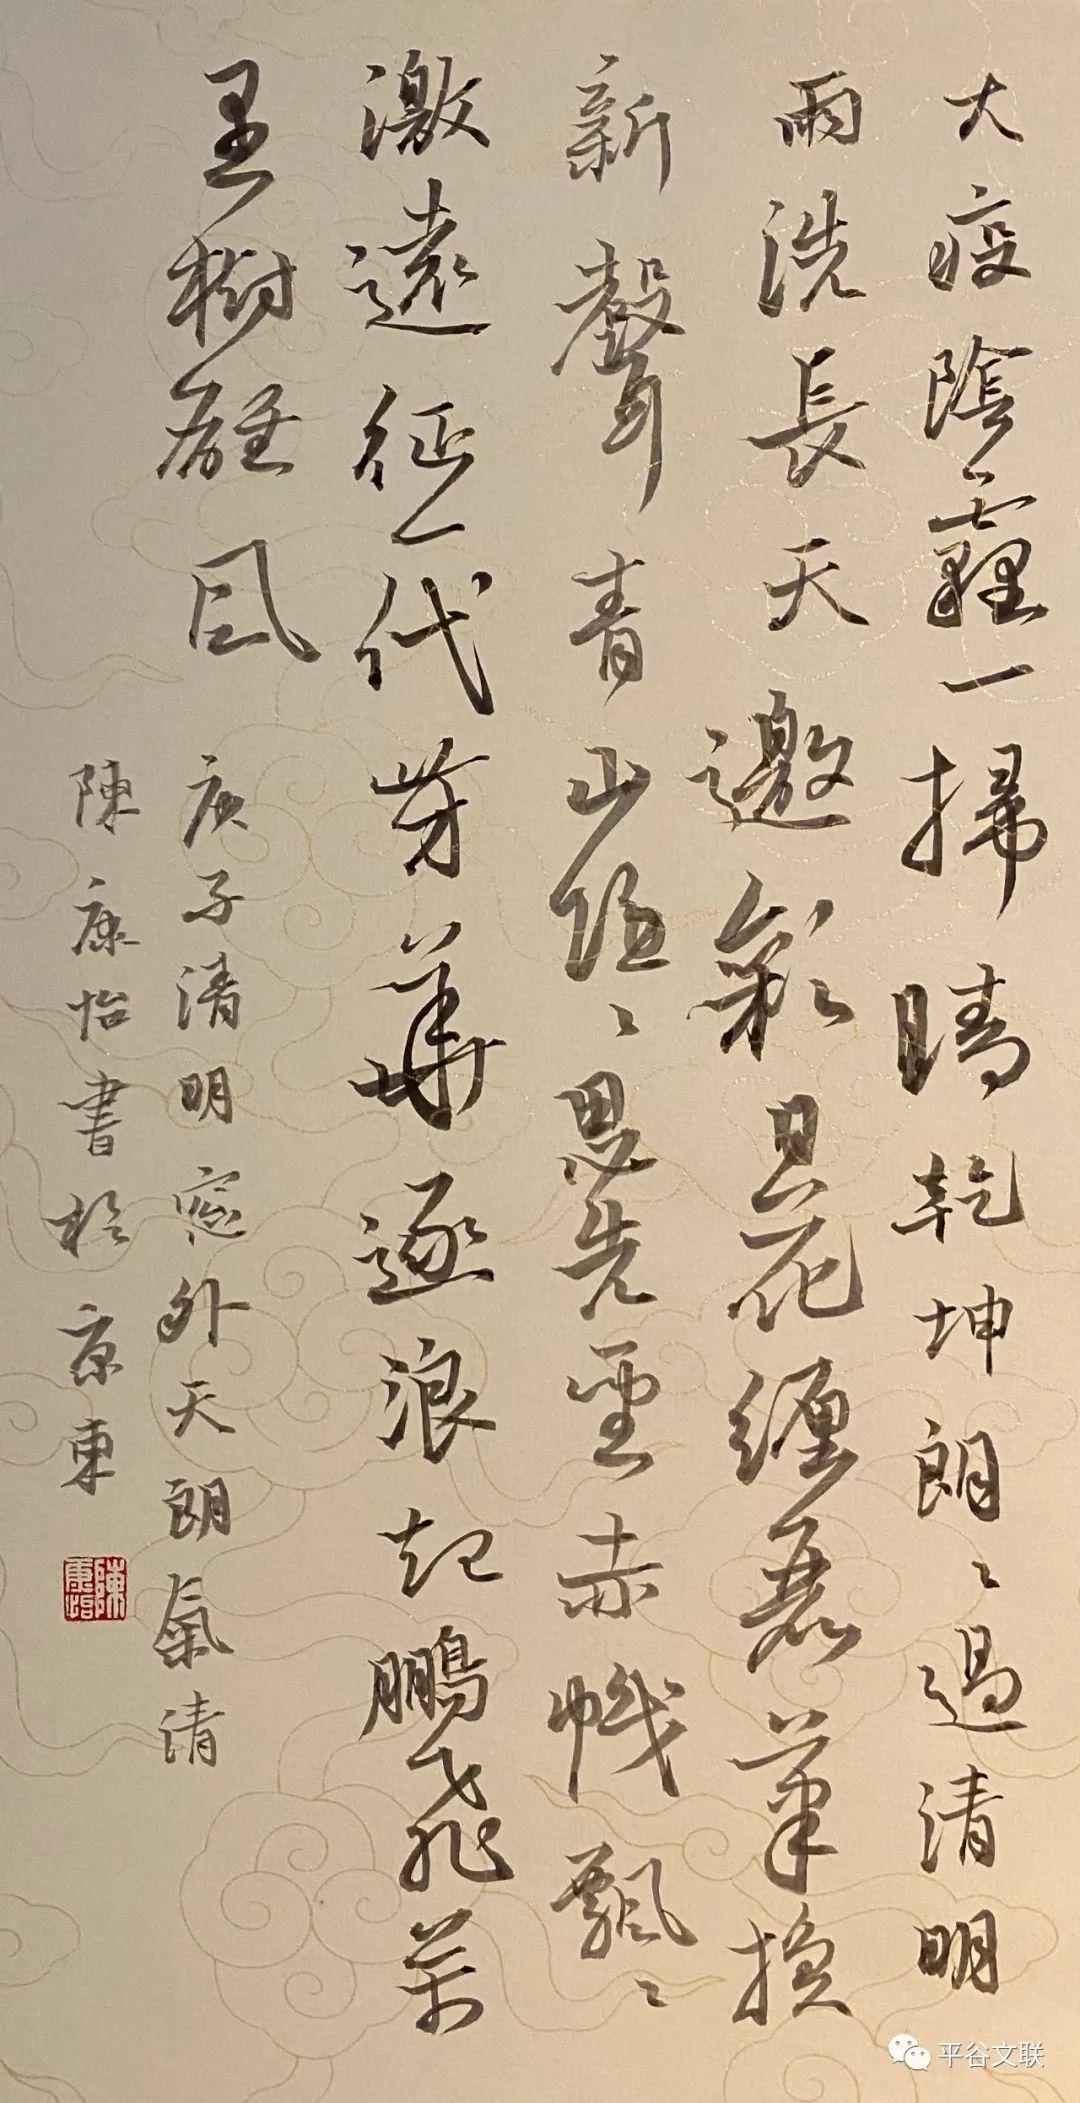 大疫陰霾一掃晴乾坤朗〻過清明
雨洗長天邀花纏碧草換
新聲青山隱〻思先聖赤幟飄〻
激遠征一代芳華逐浪起鵬飛萬
里樹雄風
庚子清明窗外天朗氣清
陳康怡書於京東
陳康怡
平谷文联